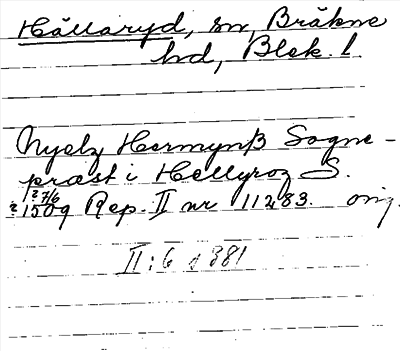 Hällaryd, sn, Bräkne
hd, Blek. l
Nyelz Hermynß Sogne-
præst i Hellyroz S.
1?7/6
? 1509 Rep. II nr 11283. orig.
II:6 s 381